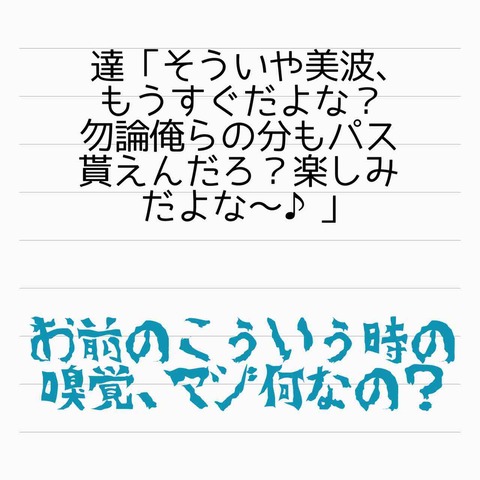 達「そういや美波、
もうすぐだよな？
勿論俺らの分もパス
貰えんだろ？楽しみ
だよな〜♪」
お前のこういう時の
嗅覚、マジ何なの？